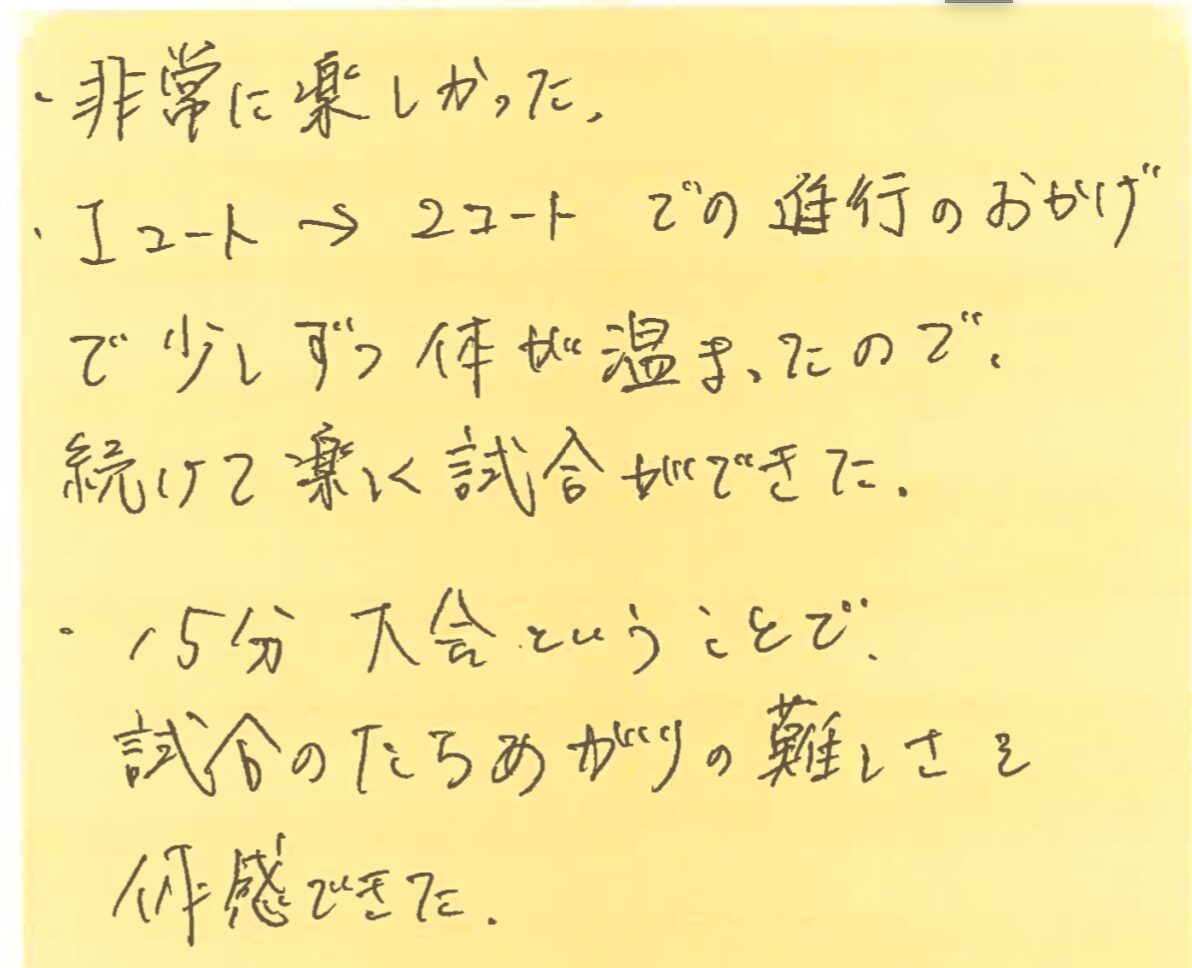 ・非常に楽しかった.
・1コート→2コート での進行のおかげ
で少しずつ体が温まったので、
続けて楽しく試合ができた.
・15分 大会ということで、
試合のたちあがりの難しさを
体感できた.